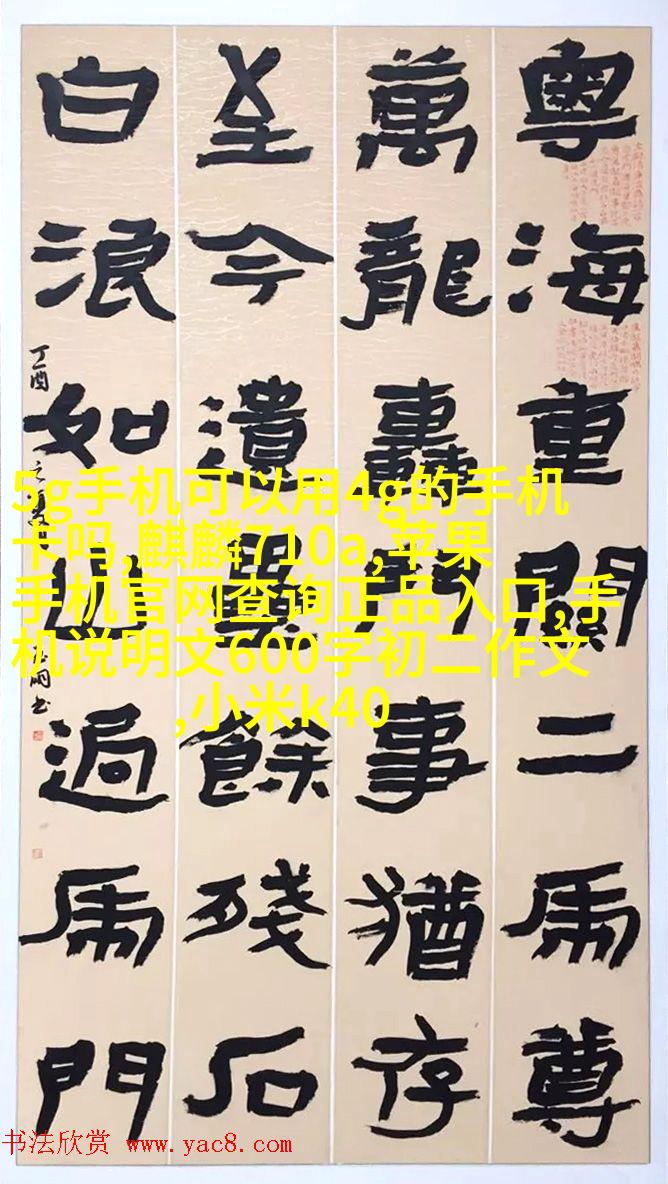 粵海重關二乕尊
萬龍轟鬥事猶存
至今遺壘餘殘石
白浪如山過乕門
丁酉之夏
书
5g手机可以用4g的手机
卡吗,麒麟710a,苹果
手机官网查询正品入口,手
机说明文600字初二作文
,小米k40
书法欣赏 www.yac8.com